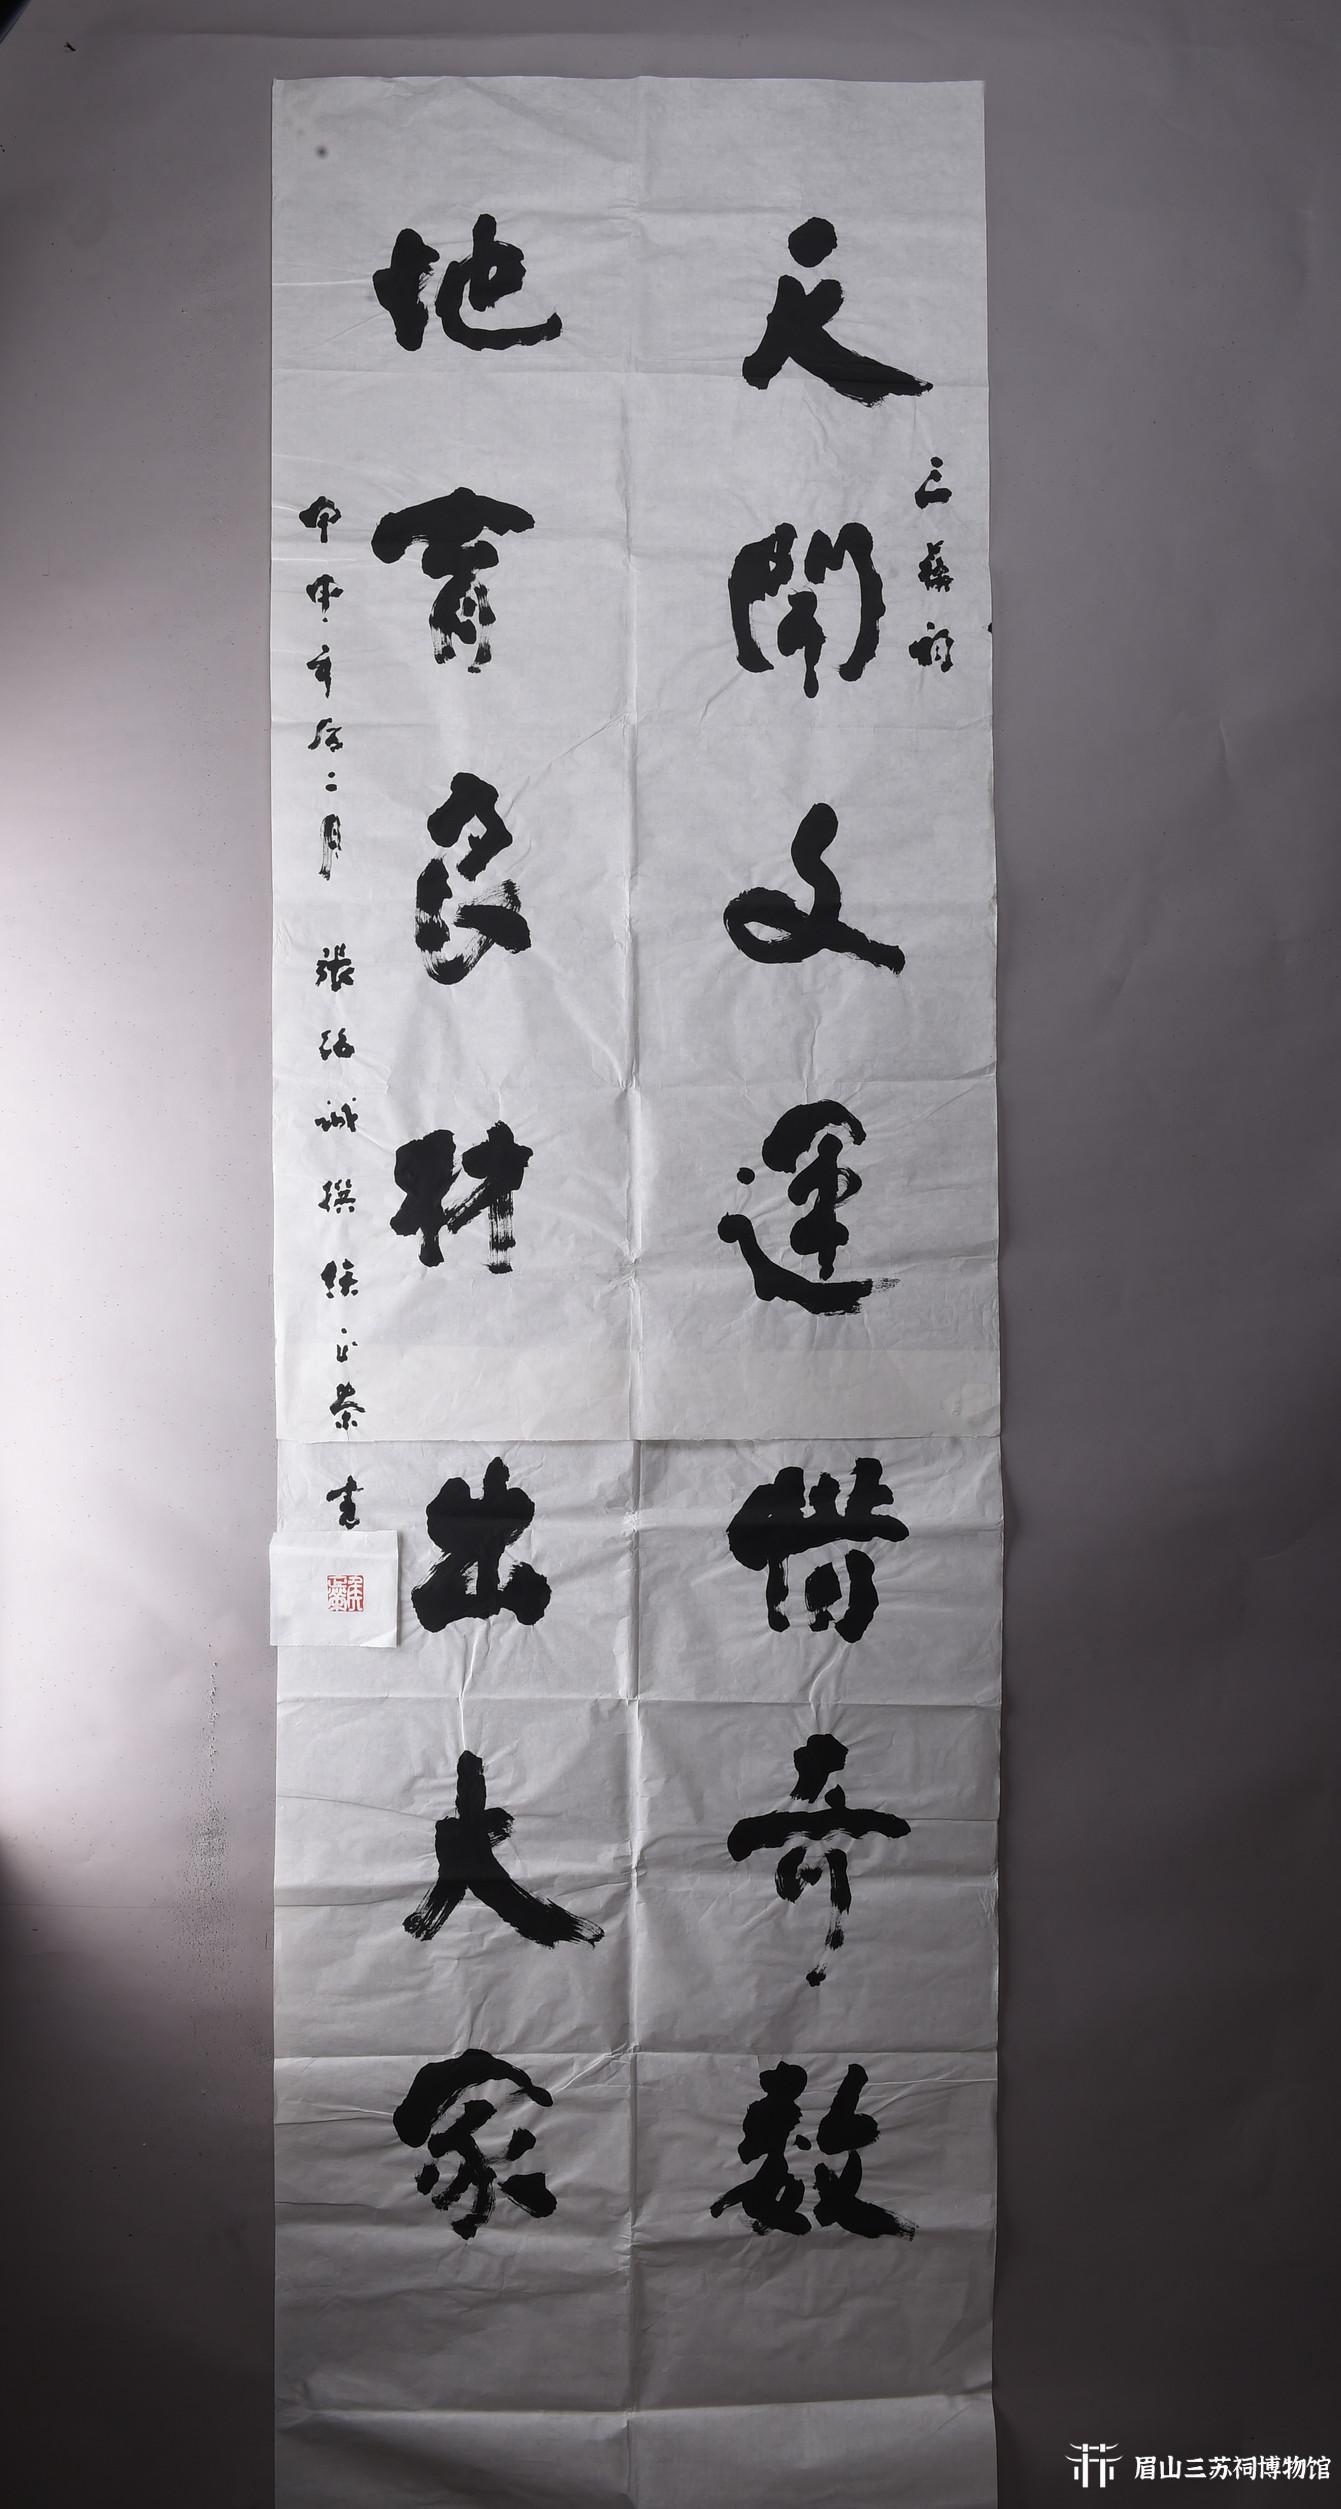 天開文運借奇數
三蘇祠
地育良材出大家
甲申年后二月 張紹誠撰 侯正榮書
眉山三苏祠博物馆